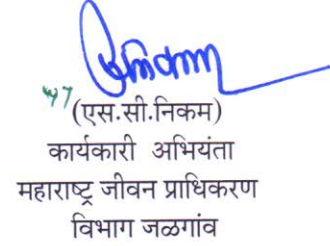 (एस.सी.निकम)
कार्यकारी अभियंता
महाराष्ट्र जीवन प्राधिकरण
विभाग जळगांव